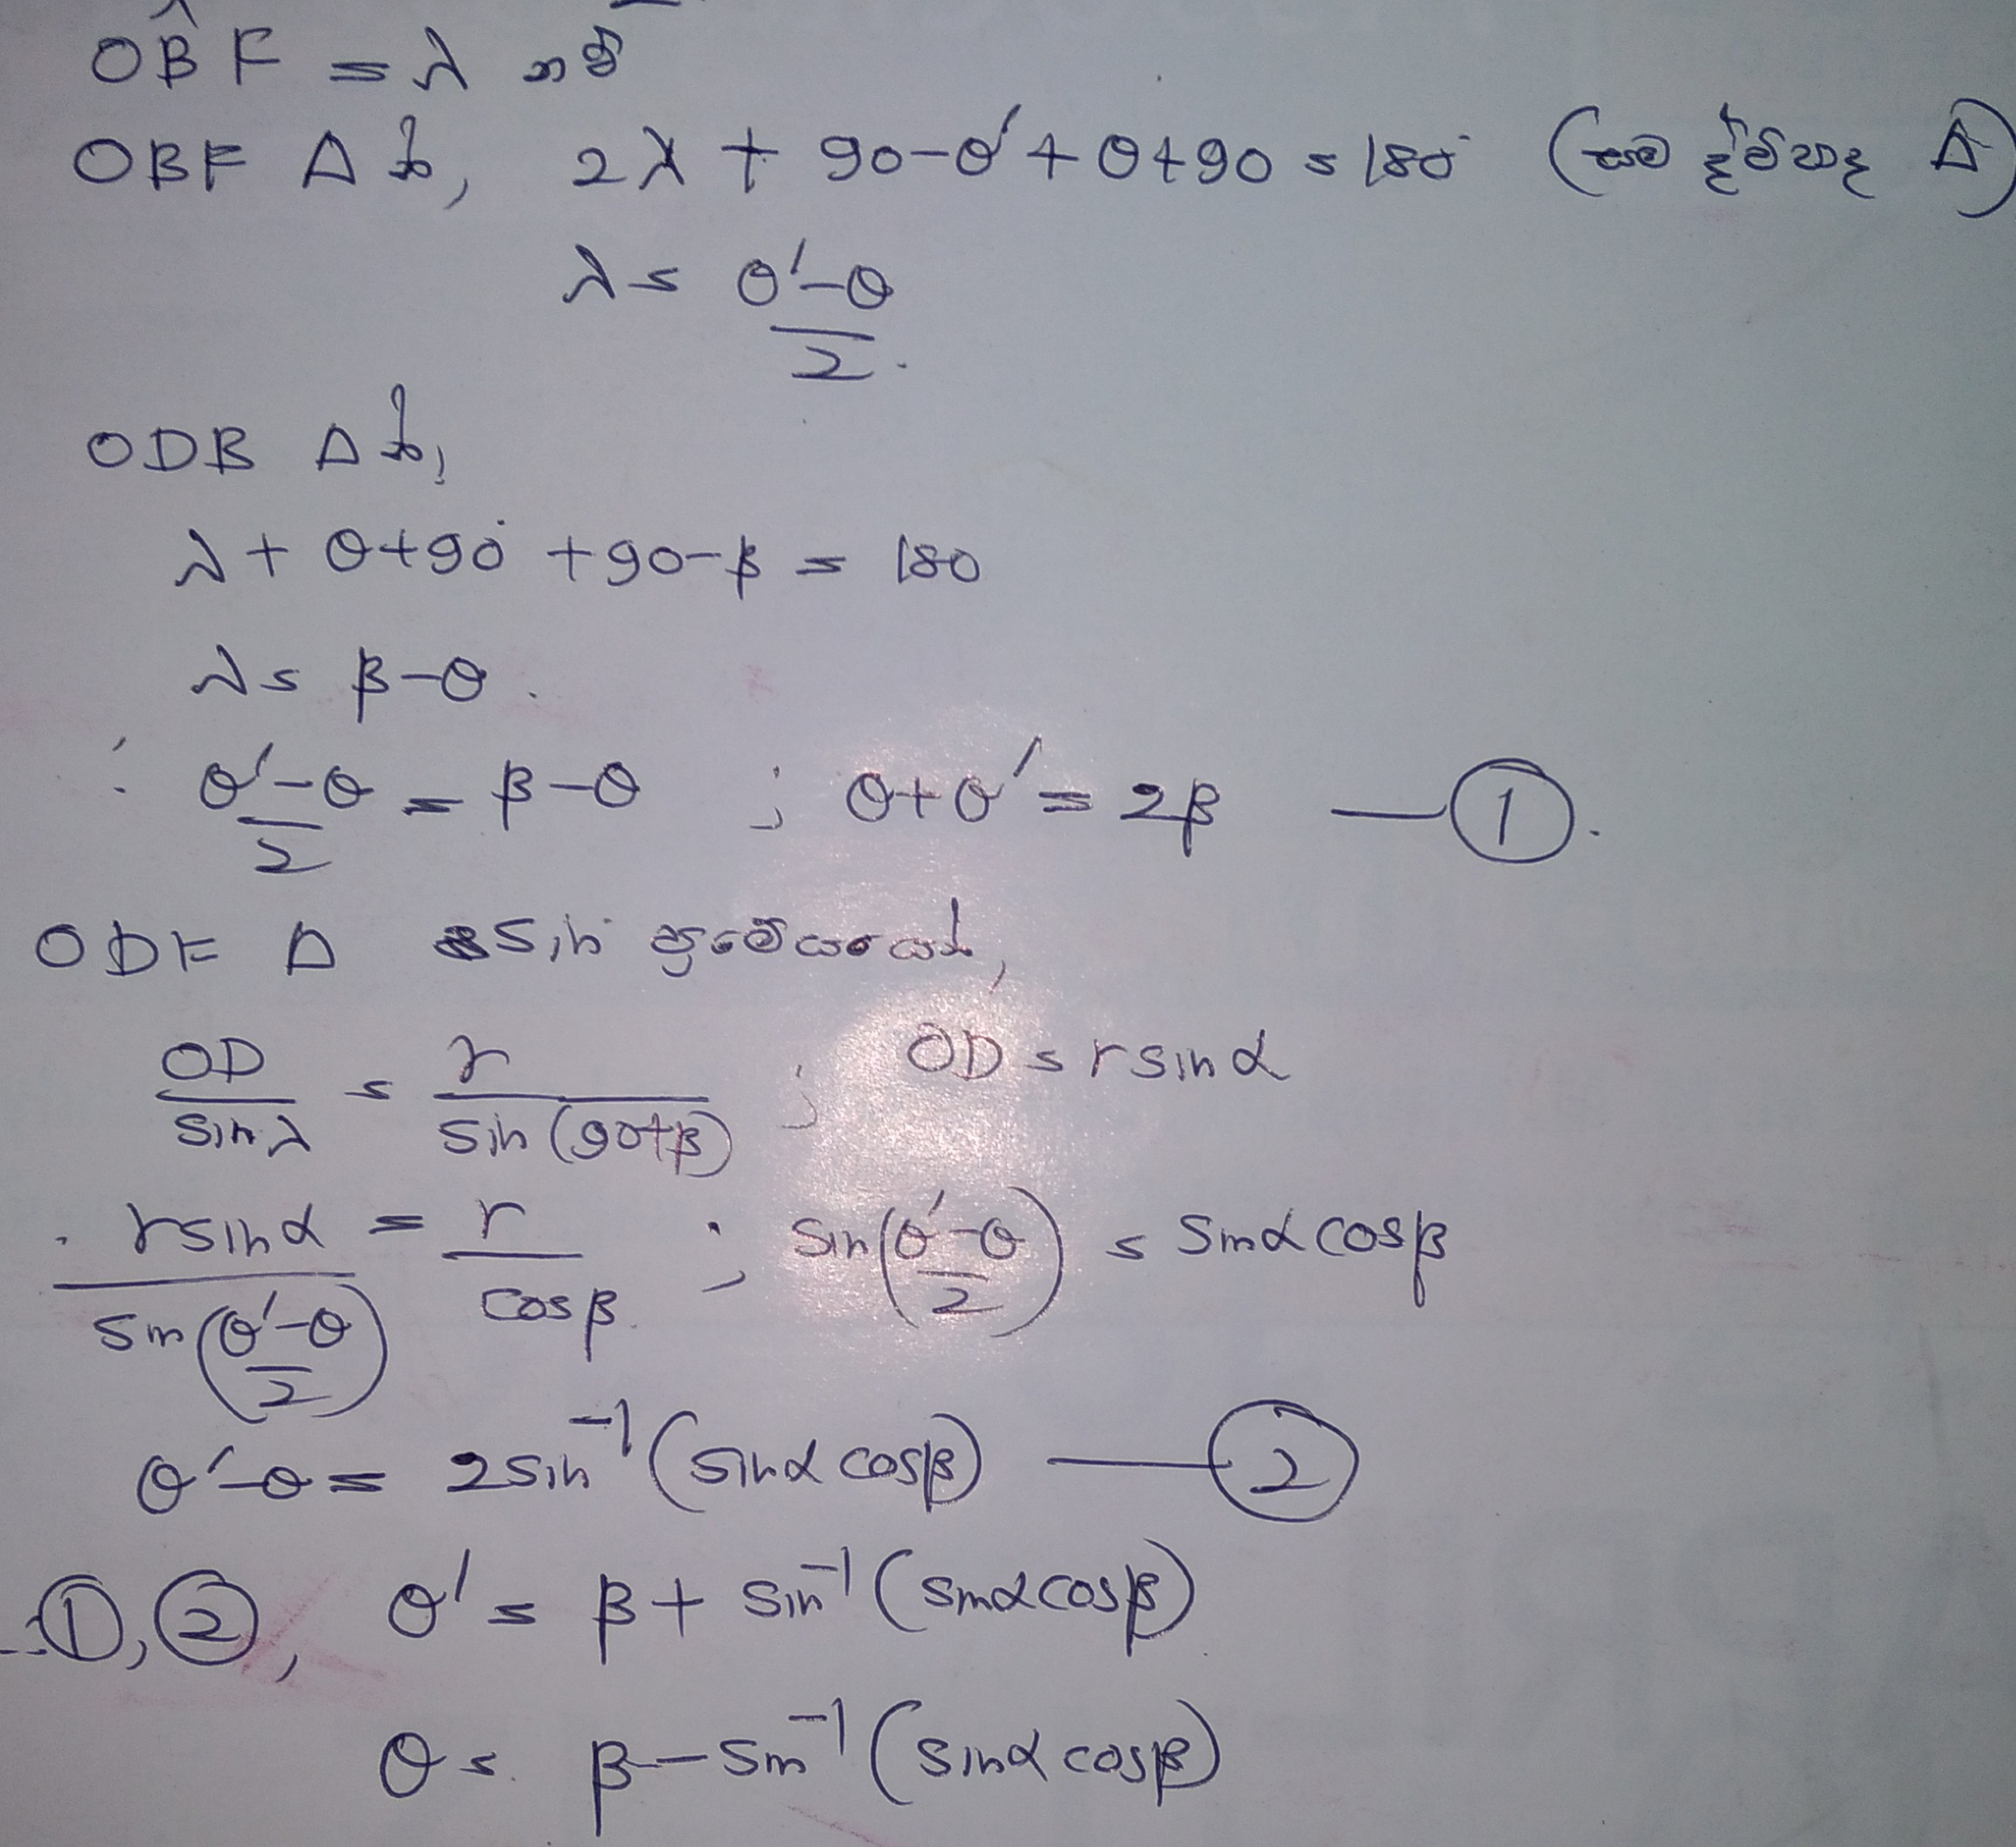 OB̂F = λ නම්
OBF Δ න්, 2λ + 90-θ' + θ+90 = 180° (සම ද්විපාද Δ)
λ = (θ'-θ)/2.
ODB Δ න්,
λ + θ+90° + 90-β = 180
λ = β-θ.
∴ (θ'-θ)/2 = β-θ ; θ+θ' = 2β — ①.
ODF Δ sin ප්‍රමේයයෙන්,
OD/sinλ = r/sin(90+β) ; OD = r sinα
∴ r sinα/sin((θ'-θ)/2) = r/cosβ. ; sin((θ'-θ)/2) = sinα cosβ
θ'-θ = 2sin⁻¹(sinα cosβ) — ②
①,②, θ' = β + sin⁻¹(sinα cosβ)
θ = β - sin⁻¹(sinα cosβ)